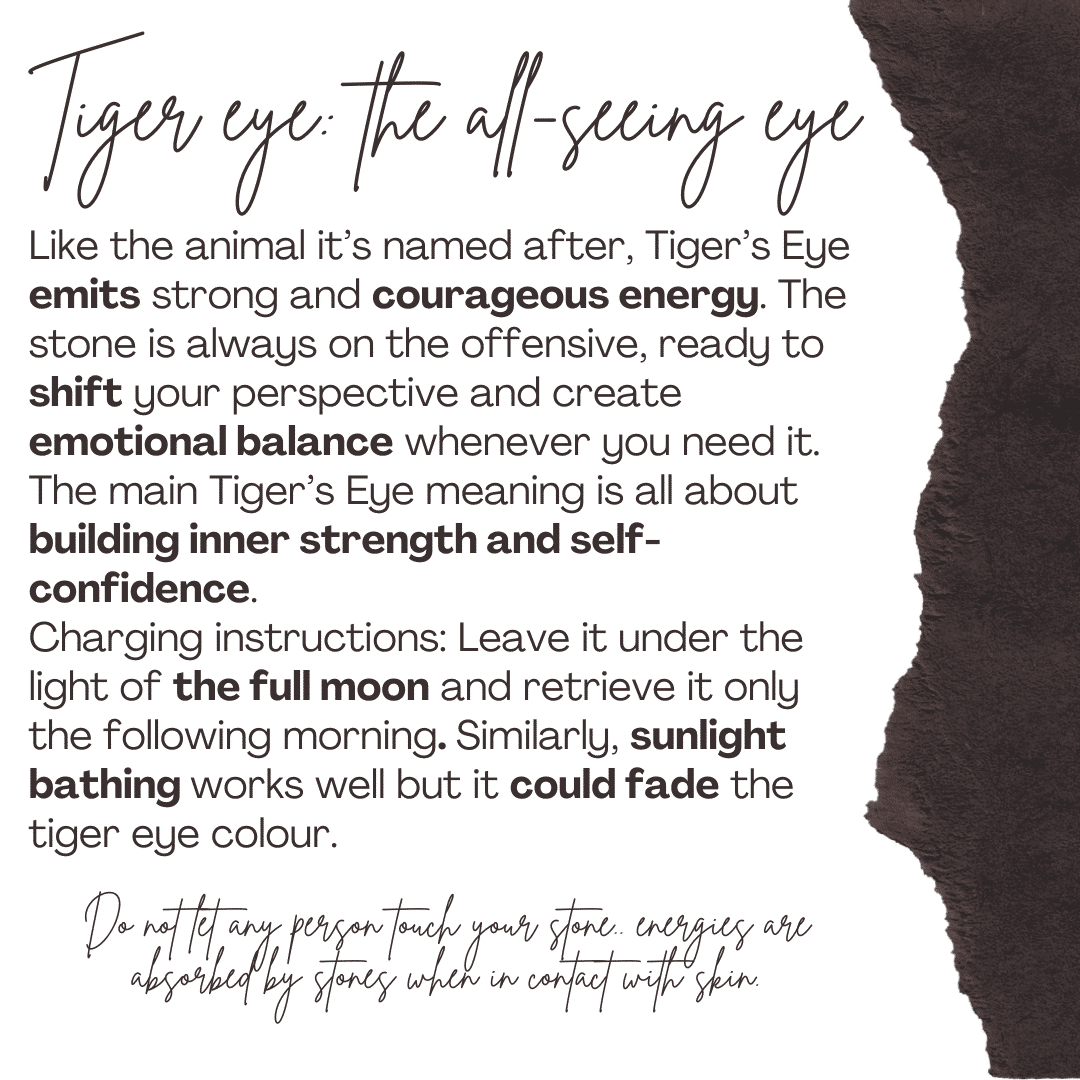 Tiger eye: the all-seeing eye
Like the animal it’s named after, Tiger’s Eye
emits strong and courageous energy. The
stone is always on the offensive, ready to
shift your perspective and create
emotional balance whenever you need it.
The main Tiger’s Eye meaning is all about
building inner strength and self-
confidence.
Charging instructions: Leave it under the
light of the full moon and retrieve it only
the following morning. Similarly, sunlight
bathing works well but it could fade the
tiger eye colour.
Do not let any person touch your stone.. energies are
absorbed by stones when in contact with skin.